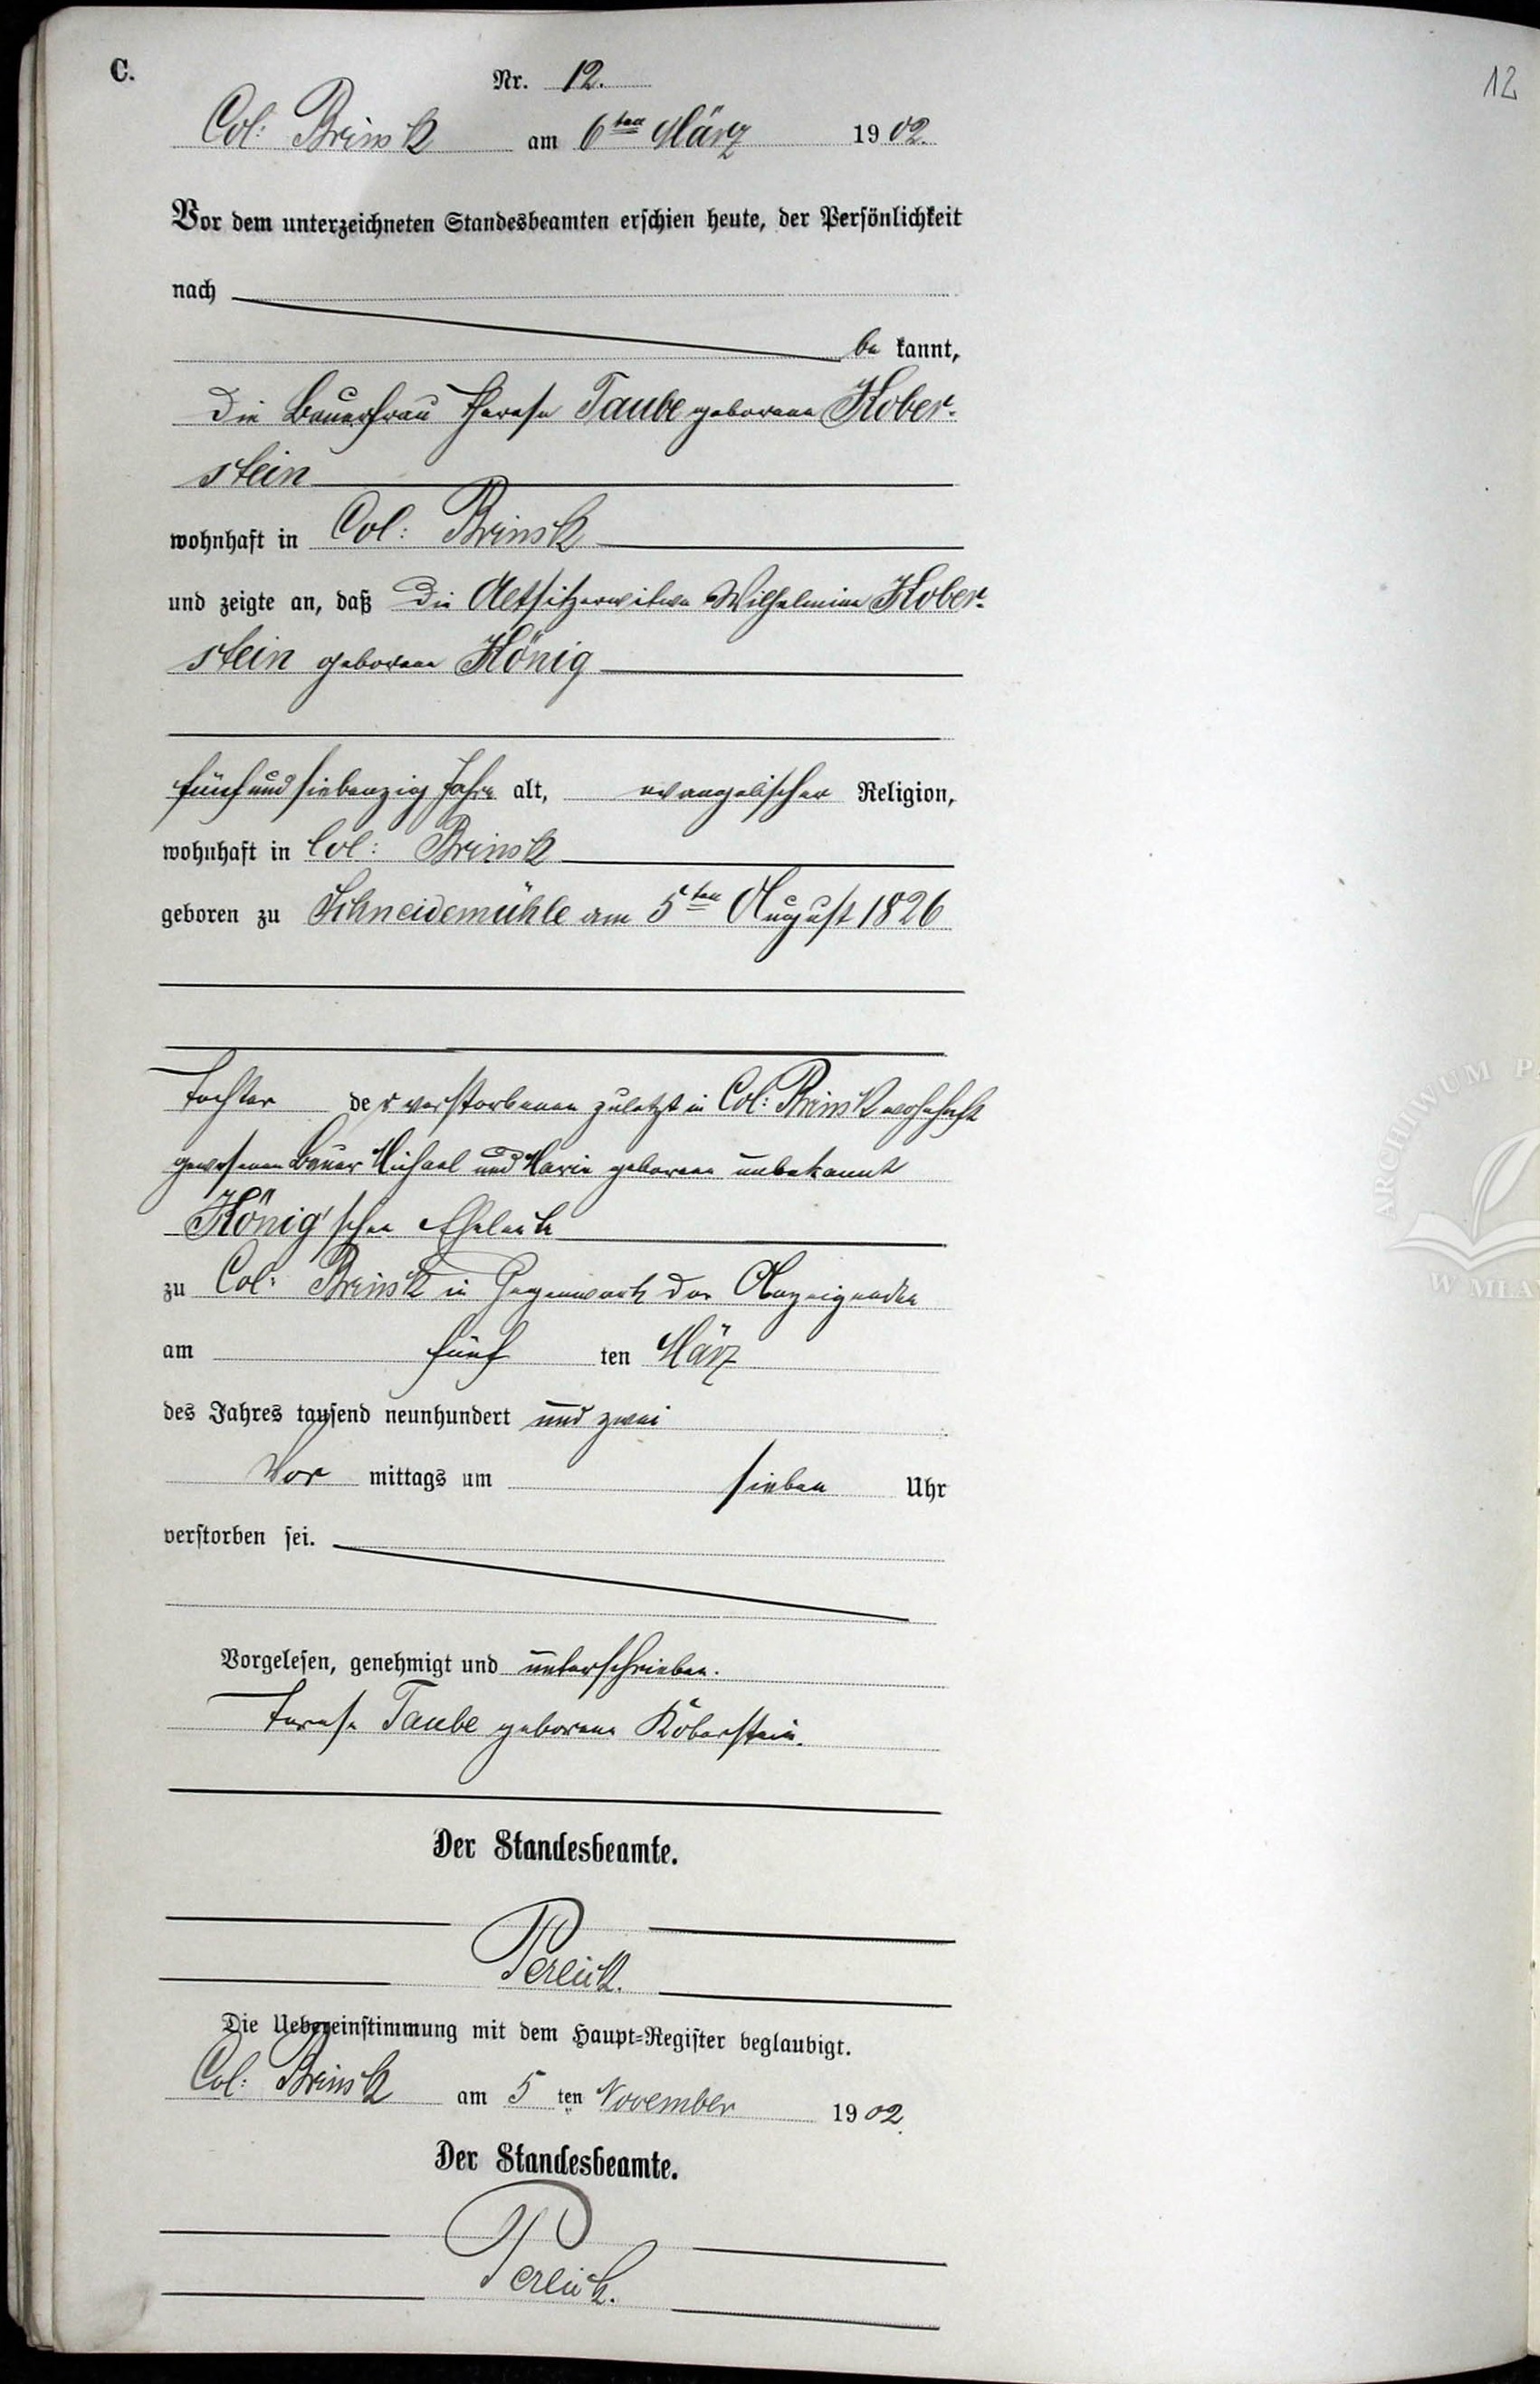 C.
Nr. 12.
12
Col: Brinsk am 6ten März 1902.
Vor dem unterzeichneten Standesbeamten erschien heute, der Persönlichkeit
nach
be kannt,
die Bauerfrau Therese Taube geborene Kober-
stein
wohnhaft in Col: Brinsk
und zeigte an, daß die Altsitzerwitwe Wilhelmine Kober-
stein geborene König
fünfundsiebenzig Jahre alt, evangelischer Religion,
wohnhaft in Col: Brinsk
geboren zu Schneidemühle am 5ten August 1826
Tochter der verstorbenen zuletzt in Col: Brinsk wohnhaft
gewesenen Bauer Michael und Marie geborene unbekannt
König'schen Eheleute
zu Col: Brinsk in Gegenwart der Anzeigenden
am fünf ten März
des Jahres tausend neunhundert und zwei
Vor mittags um sieben Uhr
verstorben sei.
Vorgelesen, genehmigt und unterschrieben.
Terese Taube geborene Koberstein.
Der Standesbeamte.
Perlick.
Die Uebereinstimmung mit dem Haupt-Register beglaubigt.
Col: Brinsk am 5 ten November 1902.
Der Standesbeamte.
Perlick.
ARCHIWUM P
W MŁA